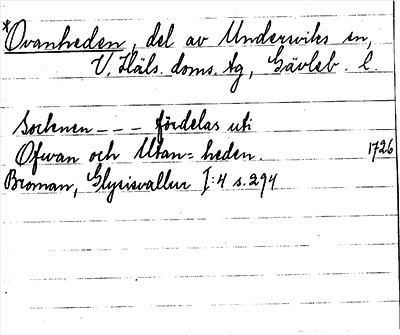 *Ovanheden, del av Underwiks sn,
V. Häls. doms. tg, Gävleb. l.
Socknen - - - fördelas uti
Ofwan och Utan= heden. 1726
Broman, Glysisvallur I:4 s. 294